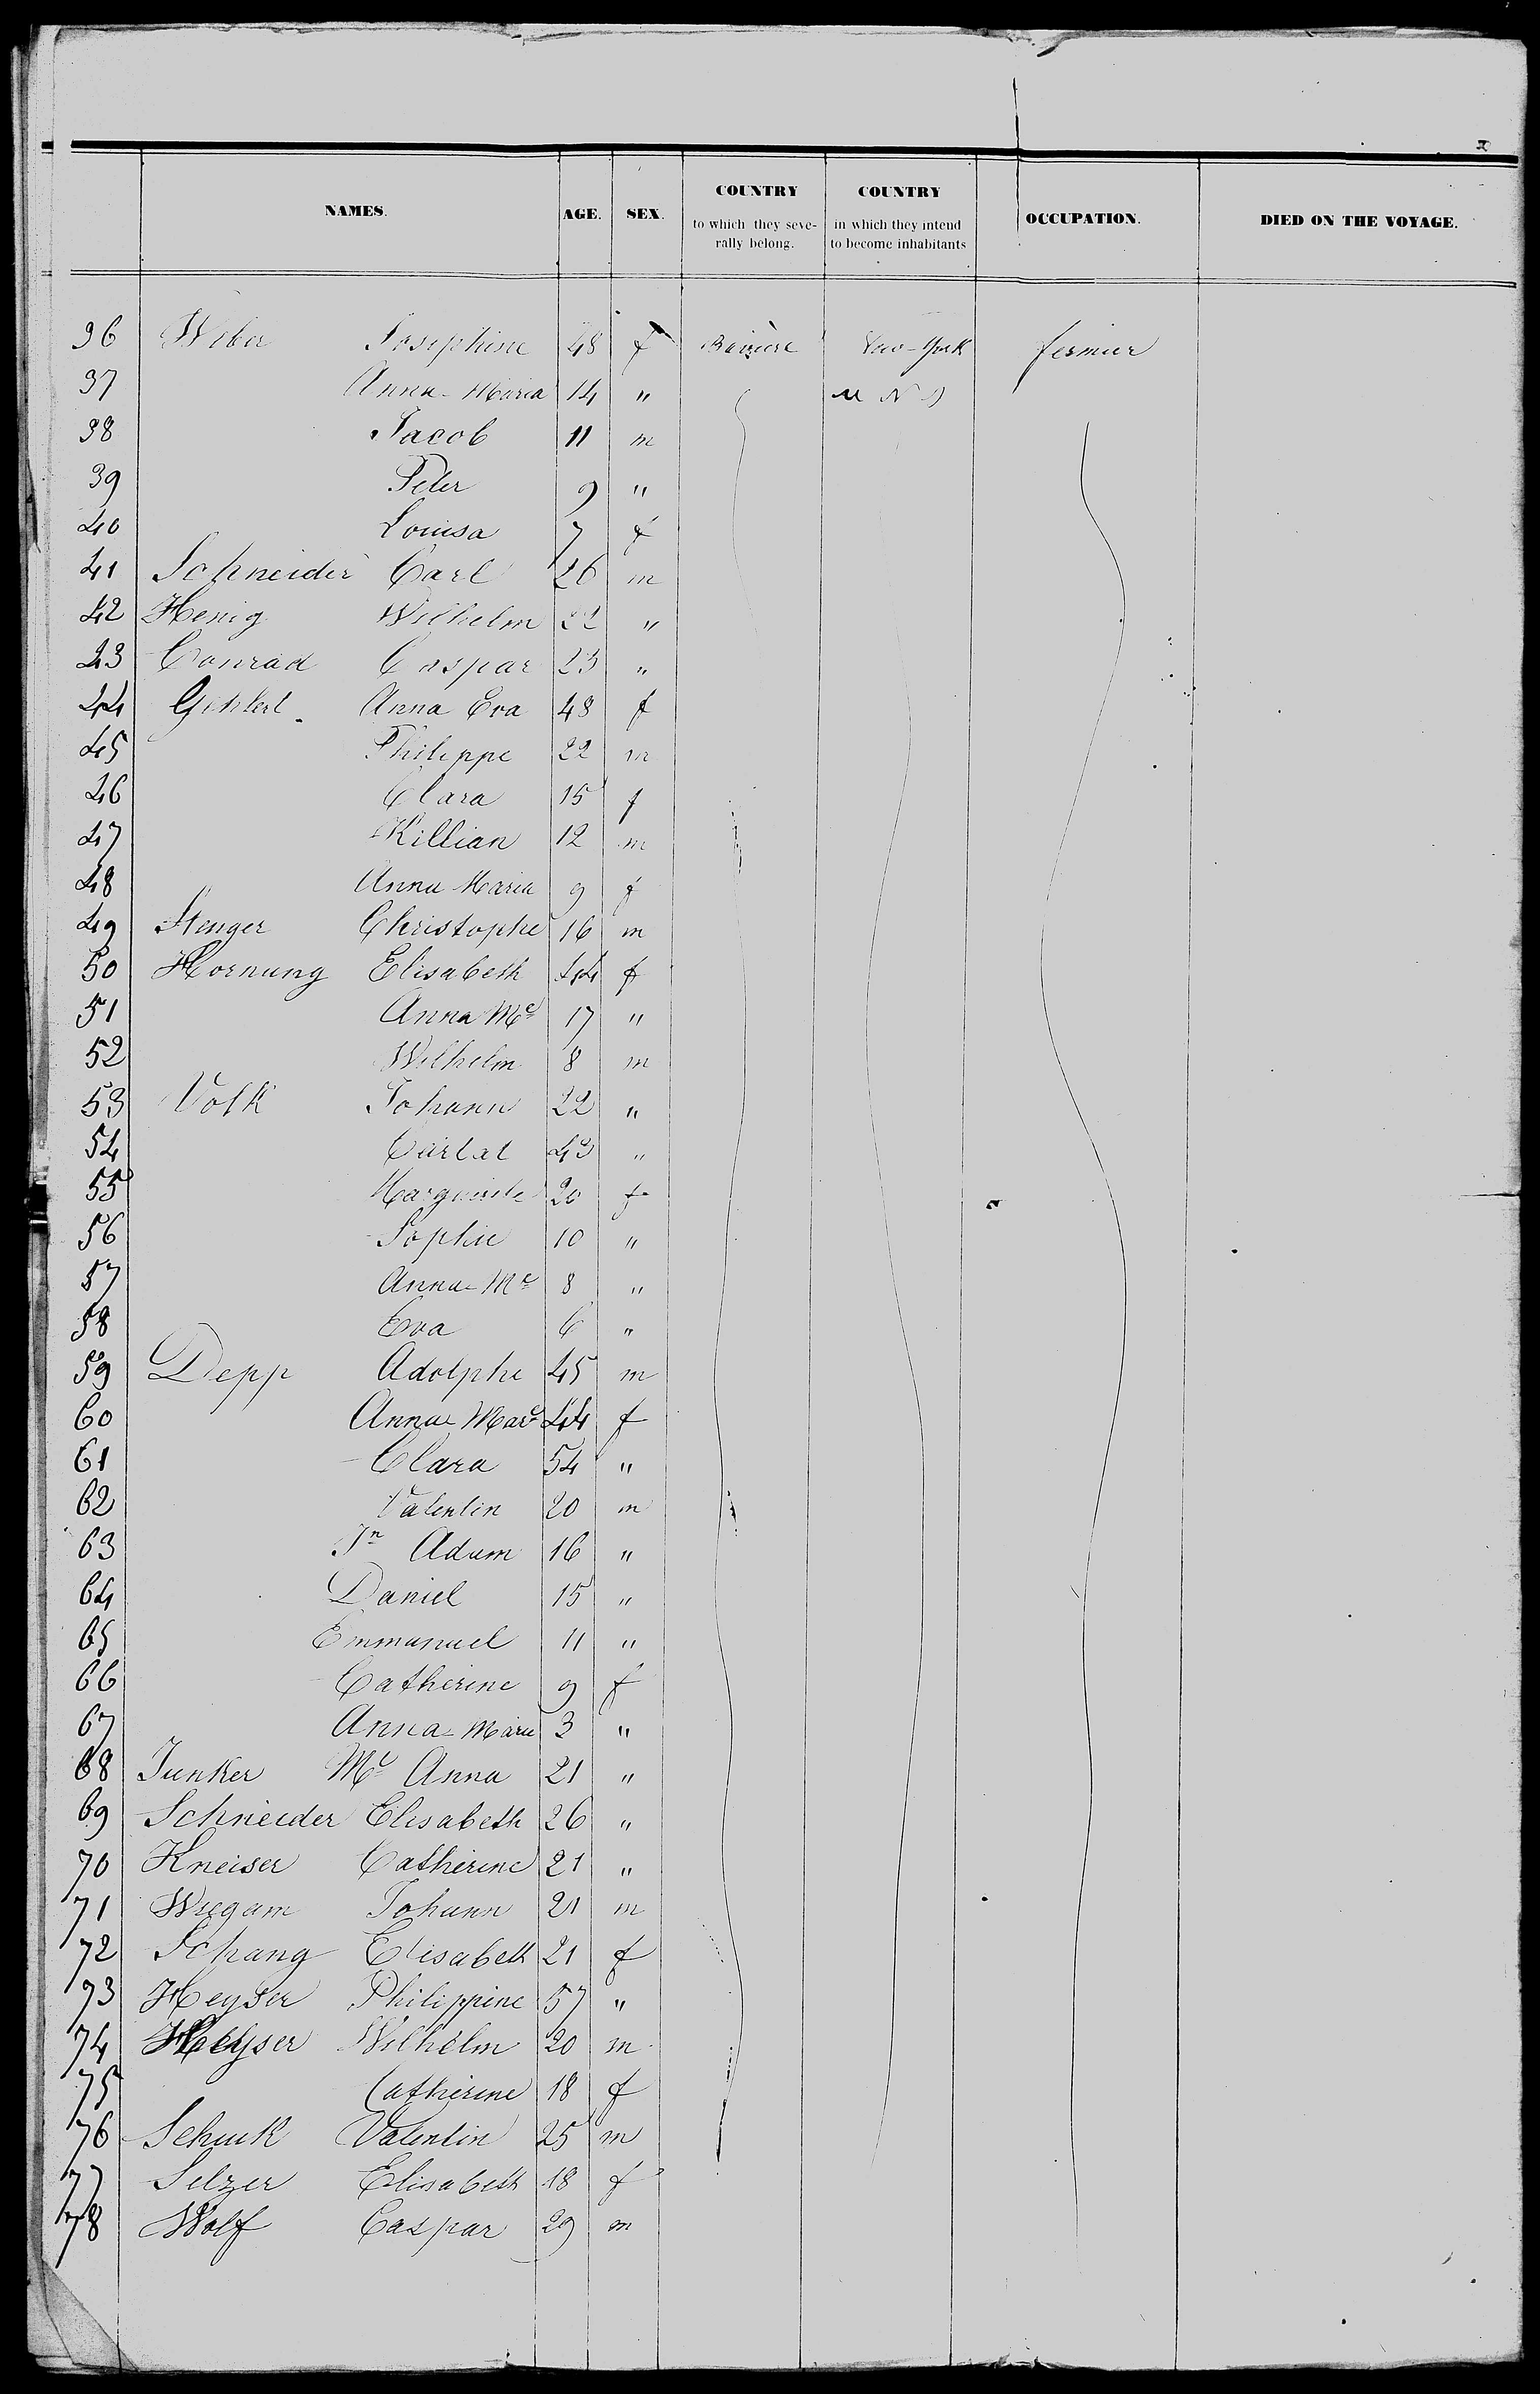 NAMES. AGE. SEX. COUNTRY to which they seve- rally belong. COUNTRY in which they intend to become inhabitants OCCUPATION. DIED ON THE VOYAGE.
36 Weber Josephine 48 f Baviere New-York fermier
37 Anna-Maria 14 "
38 Jacob 11 m
39 Peter 9 "
40 Louisa 7 f
41 Schneider Carl 26 m
42 Henig Wilhelm 22 "
43 Conrad Caspar 23 "
44 Gehlert Anna Eva 48 f
45 Philippe 22 m
46 Clara 15 f
47 Killian 12 m
48 Anna Maria 9 f
49 Stenger Christophe 16 m
50 Hornung Elisabeth 44 f
51 Anna Me 17 "
52 Wilhelm 8 m
53 Volk Johann 22 "
54 43 "
55 Marguerite 20 f
56 Sophie 10 "
57 Anna-Me 8 "
58 Eva 6 "
59 Depp Adolphe 45 m
60 Anna Mare 44 f
61 Clara 54 "
62 Valentin 20 m
63 Jn Adam 16 "
64 Daniel 15 "
65 Emmanuel 11 "
66 Catherine 9 f
67 Anna-Marie 3 "
68 Junker Me Anna 21 "
69 Schneider Elisabeth 26 "
70 Kneiser Catherine 21 "
71 Wiegam Johann 21 m
72 Schang Elisabeth 21 f
73 Heyser Philippine 57 "
74 Heyser Wilhelm 20 m
75 Catherine 18 f
76 Schuck Valentin 25 m
77 Selzer Elisabeth 18 f
78 Wolf Caspar 29 m